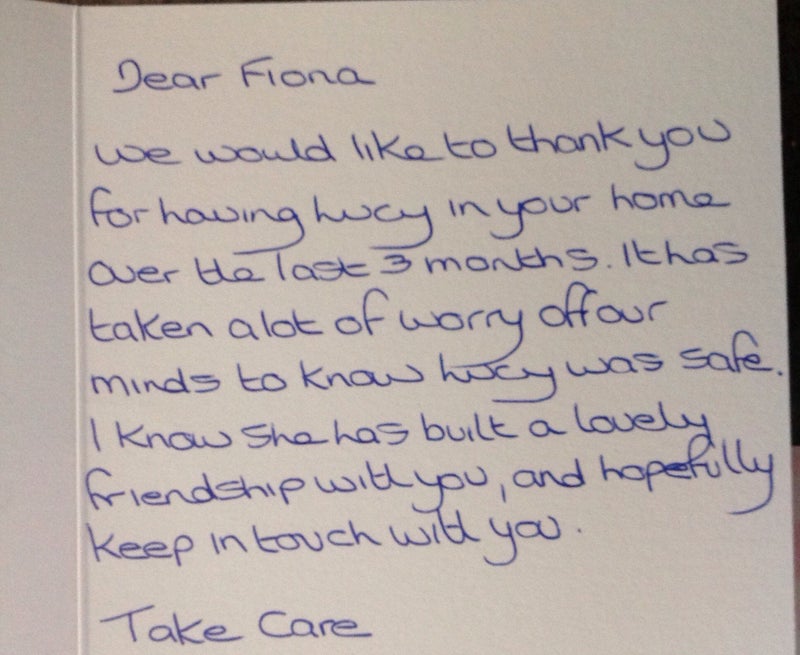 Dear Fiona
We would like to thank you
for having Lucy in your home
over the last 3 months. It has
taken alot of worry off our
minds to know Lucy was safe.
I know she has built a lovely
friendship with you, and hopefully
keep in touch with you.
Take Care